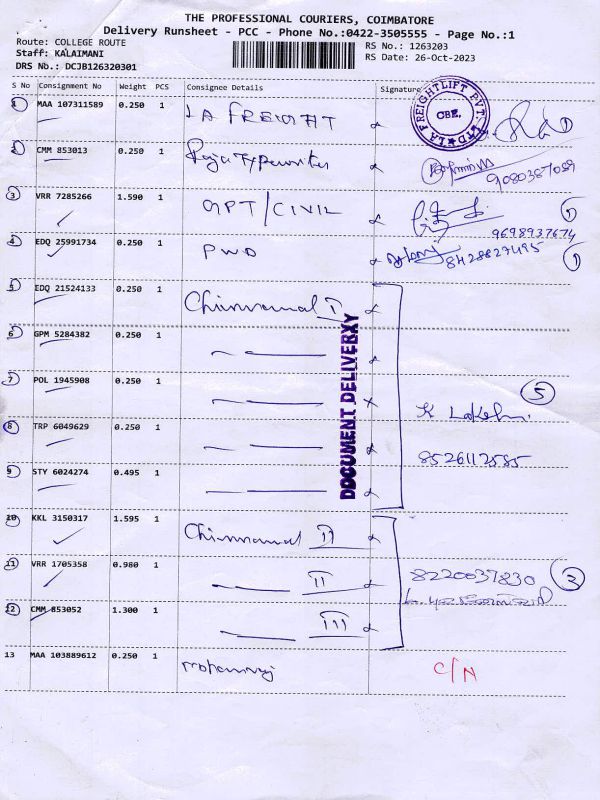 THE PROFESSIONAL COURIERS, COIMBATORE
Delivery Runsheet - PCC - Phone No.:0422-3505555 - Page No.:1
Route: COLLEGE ROUTE
Staff: KALAIMANI
DRS No.: DCJB126320301
RS No.: 1263203
RS Date: 26-Oct-2023
S No Consignment No Weight PCS Consignee Details Signature
1 MAA 107311589 0.250 1 LA FREIGHT
LA FREIGHTLIFT PVT. LTD ★ CBE.
2 CMM 853013 0.250 1 Raja Typewriter
9080387089
3 VRR 7285266 1.590 1 GPT/CIVIL
9698937674 1
4 EDQ 25991734 0.250 1 PWD
8428827495 1
5 EDQ 21524133 0.250 1 Chinnamal I
6 GPM 5284382 0.250 1
7 POL 1945908 0.250 1
DOCUMENT DELIVERXY
5
K Lakshmi
8 TRP 6049629 0.250 1
8526112585
9 STY 6024274 0.495 1
10 KKL 3150317 1.595 1 Chinnamal II
11 VRR 1705358 0.980 1 II
8220037830
12 CMM 853052 1.300 1 III
13 MAA 103889612 0.250 1 mohanraj
C/N